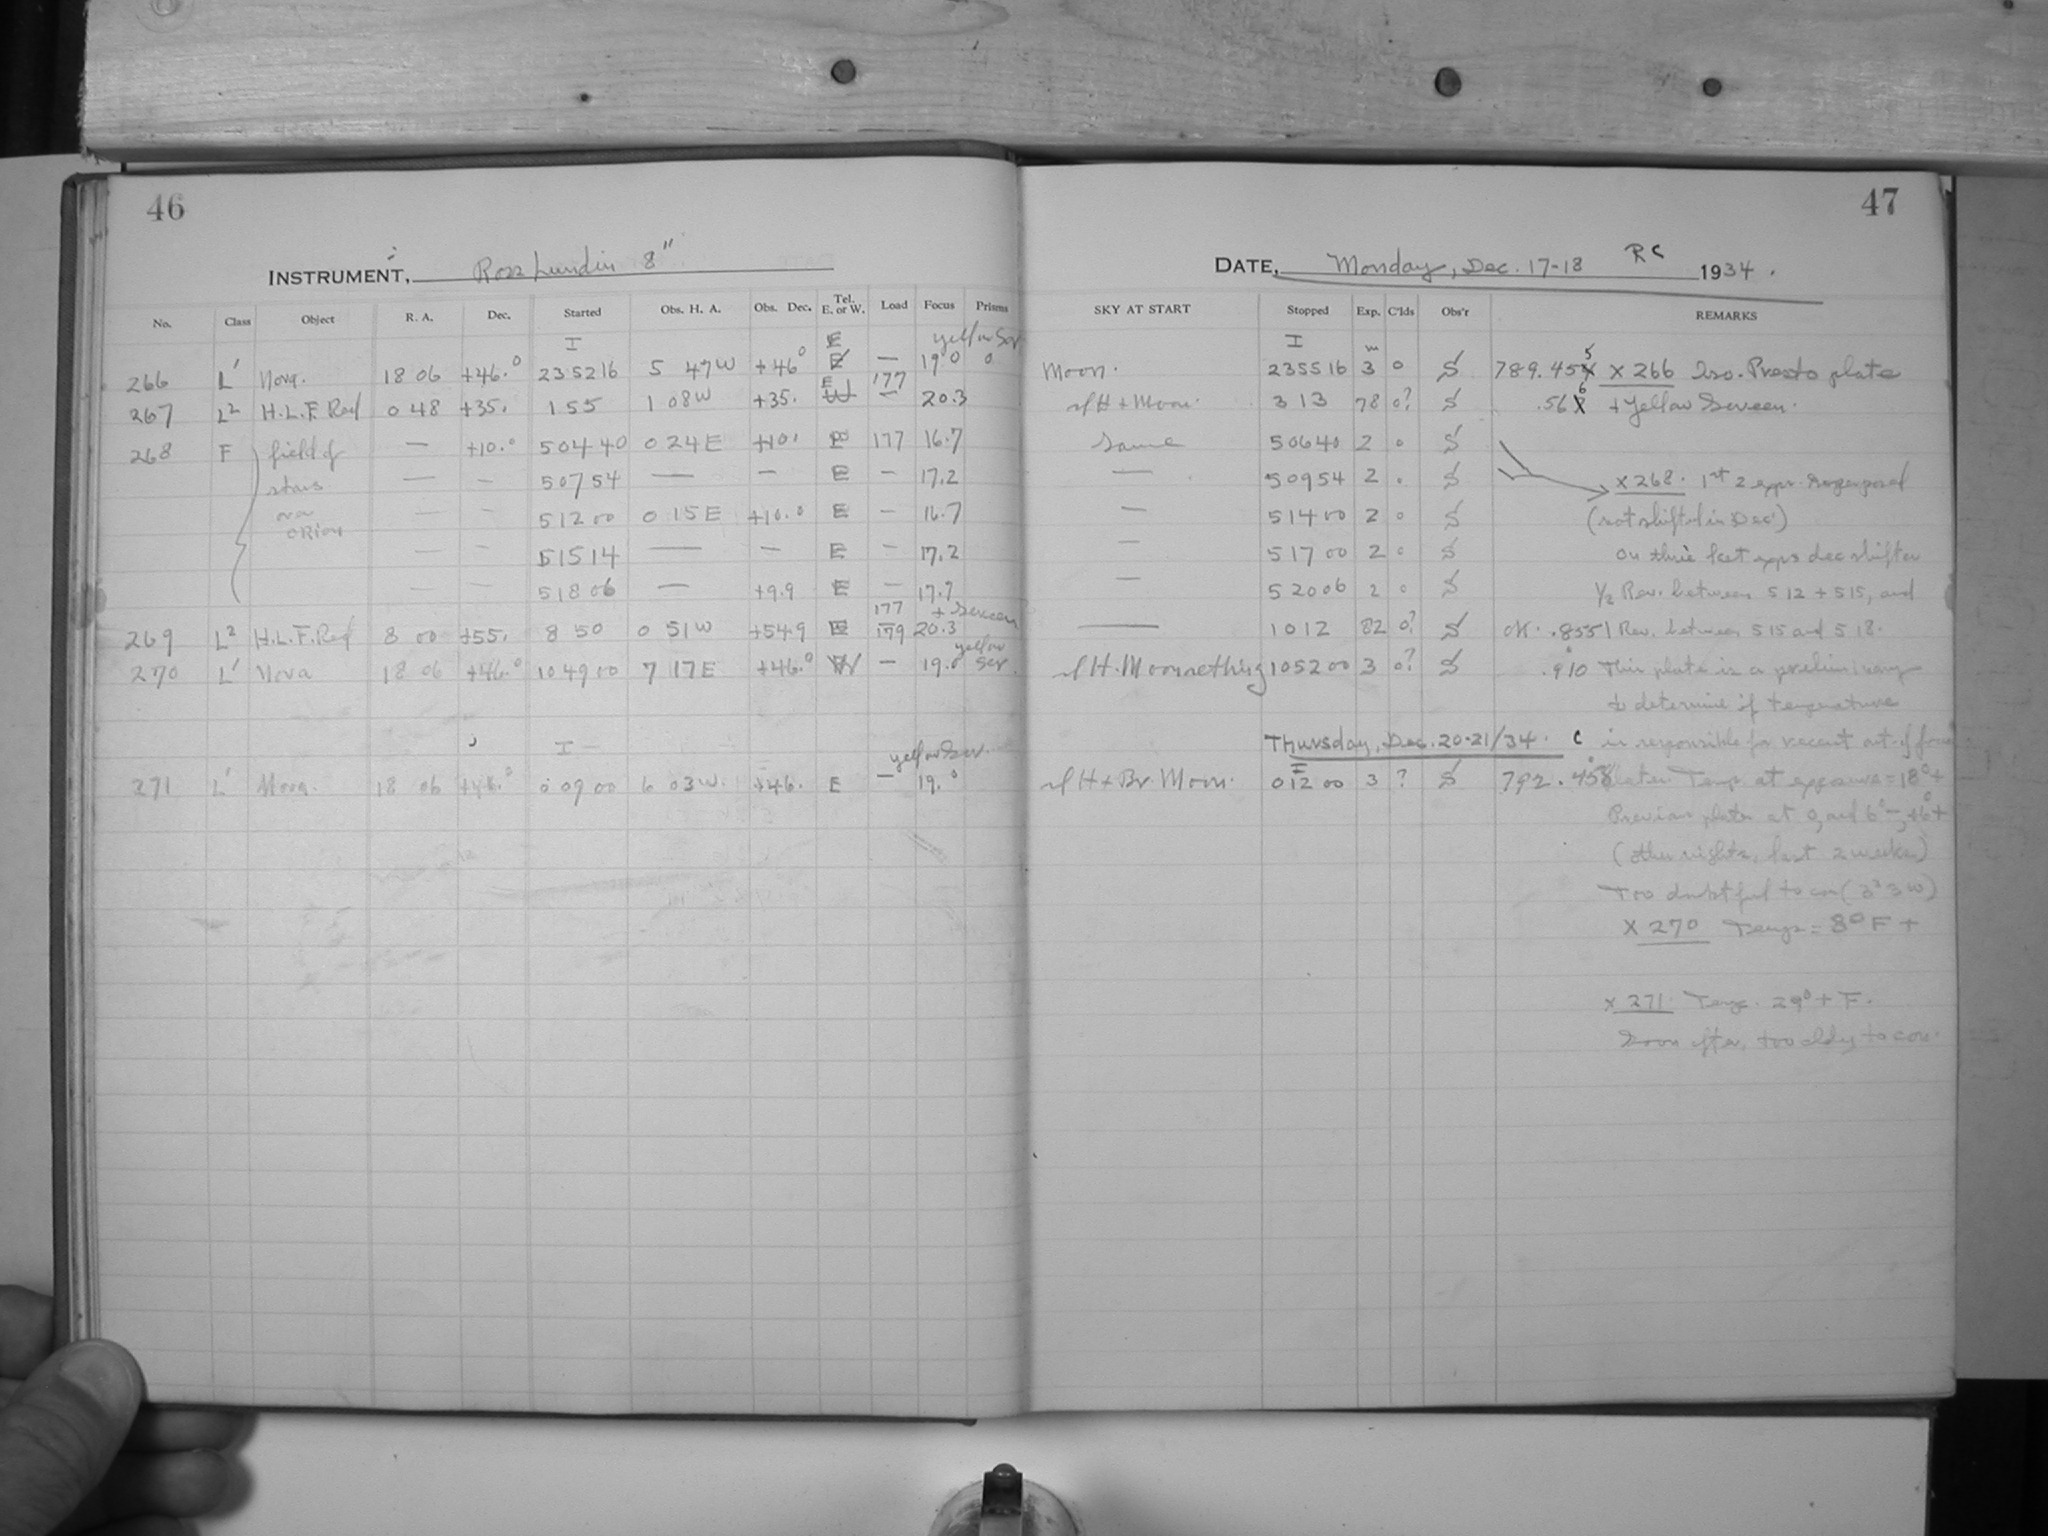 46
INSTRUMENT, Ross Lundin 8"
No. Class Object R. A. Dec. Started Obs. H. A. Obs. Dec. Tel. E. or W. Load Focus Prisms
I E yellow Scr
266 L' Nova. 18 06 +46.0 235216 5 47W +46 0 E — 19.0 0
267 L2 H.L.F. Reg 0 48 +35. 1 55 1 08W +35. E 177 — 20.3
268 F field of — +10.0 50440 0 24E +10. E 177 16.7
stars — — 50754 — — E — 17.2
near — — 51200 0 15E +10.0 E — 16.7
ORION
— — 51514 — — E — 17.2
— — 51806 — +9.9 E — 17.7
177 + Screen
269 L2 H.L.F. Reg 8 00 +55. 8 50 0 51W +54.9 E 179 20.3
yellow
270 L' Nova 18 06 +46.0 104900 7 17E +46.0 W — 19.0 scr.
I
yellow Scr.
271 L' Nova. 18 06 +46.0 0 09 00 6 03W. +46. E — 19.0
47
DATE, Monday, Dec. 17-18 RC 1934.
SKY AT START Stopped Exp. C'lds Obs'r REMARKS
I m
Moon. 235516 3 0 S 789.455 X266 Iso. Presto plate
sl H + Moon. 3 13 78 0? S .566 + Yellow Screen.
Same 50640 2 0 S
— 50954 2 0 S X268. 1st 2 exps. superposed
— 51400 2 0 S (not shifted in Dec)
— 51700 2 0 S On three last exps dec shifted
— 52006 2 0 S 1/2 Rev. between 5 12 + 5 15, and
— 1012 82 0? S OK. .855 1 Rev. between 5 15 and 5 18.
sl H. Moon nothing 105200 3 0? S .910 This plate is a preliminary
to determine if temperature
Thursday, Dec. 20-21/34. C is responsible for recent out of focus
I
sl H + Br. Moon. 01200 3 ? S 792.458 plates Temp at exposure = 18°+
Previous plates at 0, and 6°-, +6°+
(other nights, last 2 weeks)
Too doubtful to con
X270 Temp = 8° F +
X271. Temp. 29°+ F.
Soon after, too cldy to con.